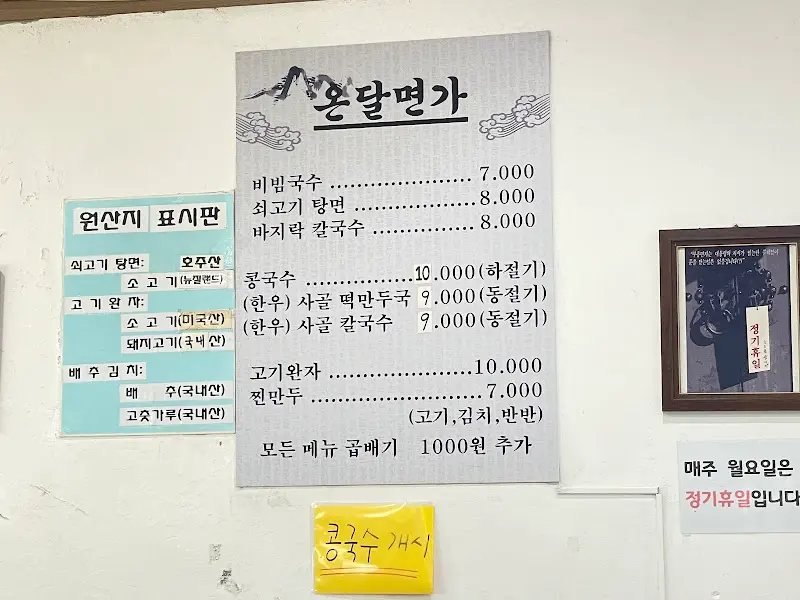 온달면가
비빔국수 ..................... 7.000
쇠고기 탕면 .................. 8.000
바지락 칼국수 ............... 8.000
콩국수 ...............10.000(하절기)
(한우) 사골 떡만두국 9.000(동절기)
(한우) 사골 칼국수 9.000(동절기)
고기완자 .....................10.000
찐만두 ......................... 7.000
(고기,김치,반반)
모든 메뉴 곱배기 1000원 추가
원산지 표시판
쇠고기 탕면: 호주산
소고기(뉴질랜드)
고기완자:
소고기(미국산)
돼지고기(국내산)
배추김치:
배 추(국내산)
고춧가루(국내산)
콩국수 개시
정기휴일
매주 월요일은
정기휴일입니다